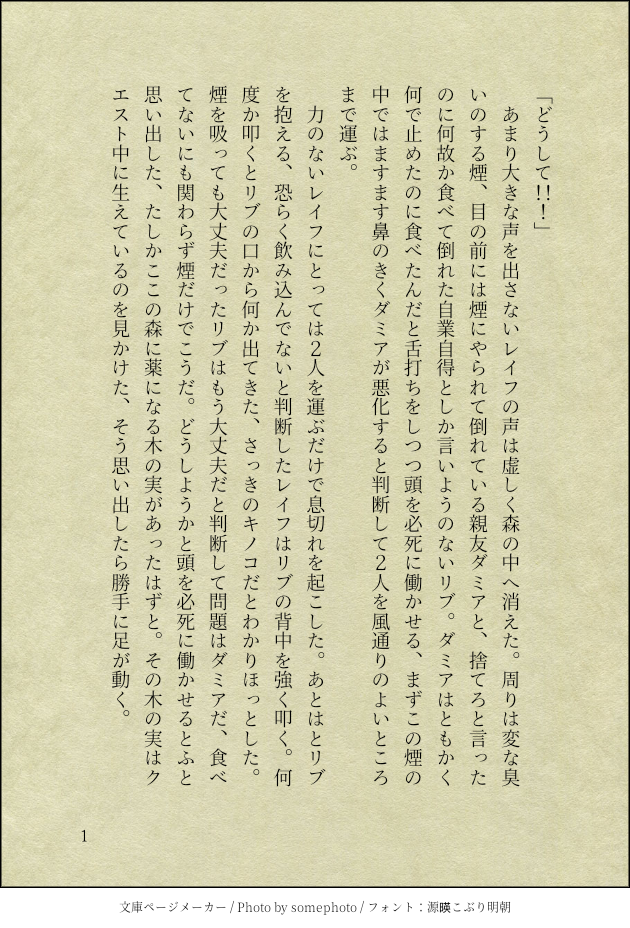 「どうして!!！」
　あまり大きな声を出さないレイフの声は虚しく森の中へ消えた。周りは変な臭
いのする煙、目の前には煙にやられて倒れている親友ダミアと、捨てろと言った
のに何故か食べて倒れた自業自得としか言いようのないリブ。ダミアはともかく
何で止めたのに食べたんだと舌打ちをしつつ頭を必死に働かせる、まずこの煙の
中ではますます鼻のきくダミアが悪化すると判断して２人を風通りのよいところ
まで運ぶ。
　力のないレイフにとっては２人を運ぶだけで息切れを起こした。あとはとリブ
を抱える、恐らく飲み込んでないと判断したレイフはリブの背中を強く叩く。何
度か叩くとリブの口から何か出てきた、さっきのキノコだとわかりほっとした。
煙を吸っても大丈夫だったリブはもう大丈夫だと判断して問題はダミアだ、食べ
てないにも関わらず煙だけでこうだ。どうしようかと頭を必死に働かせるとふと
思い出した、たしかここの森に薬になる木の実があったはずと。その木の実はク
エスト中に生えているのを見かけた、そう思い出したら勝手に足が動く。
1
文庫ページメーカー / Photo by somephoto / フォント：源暎こぶり明朝